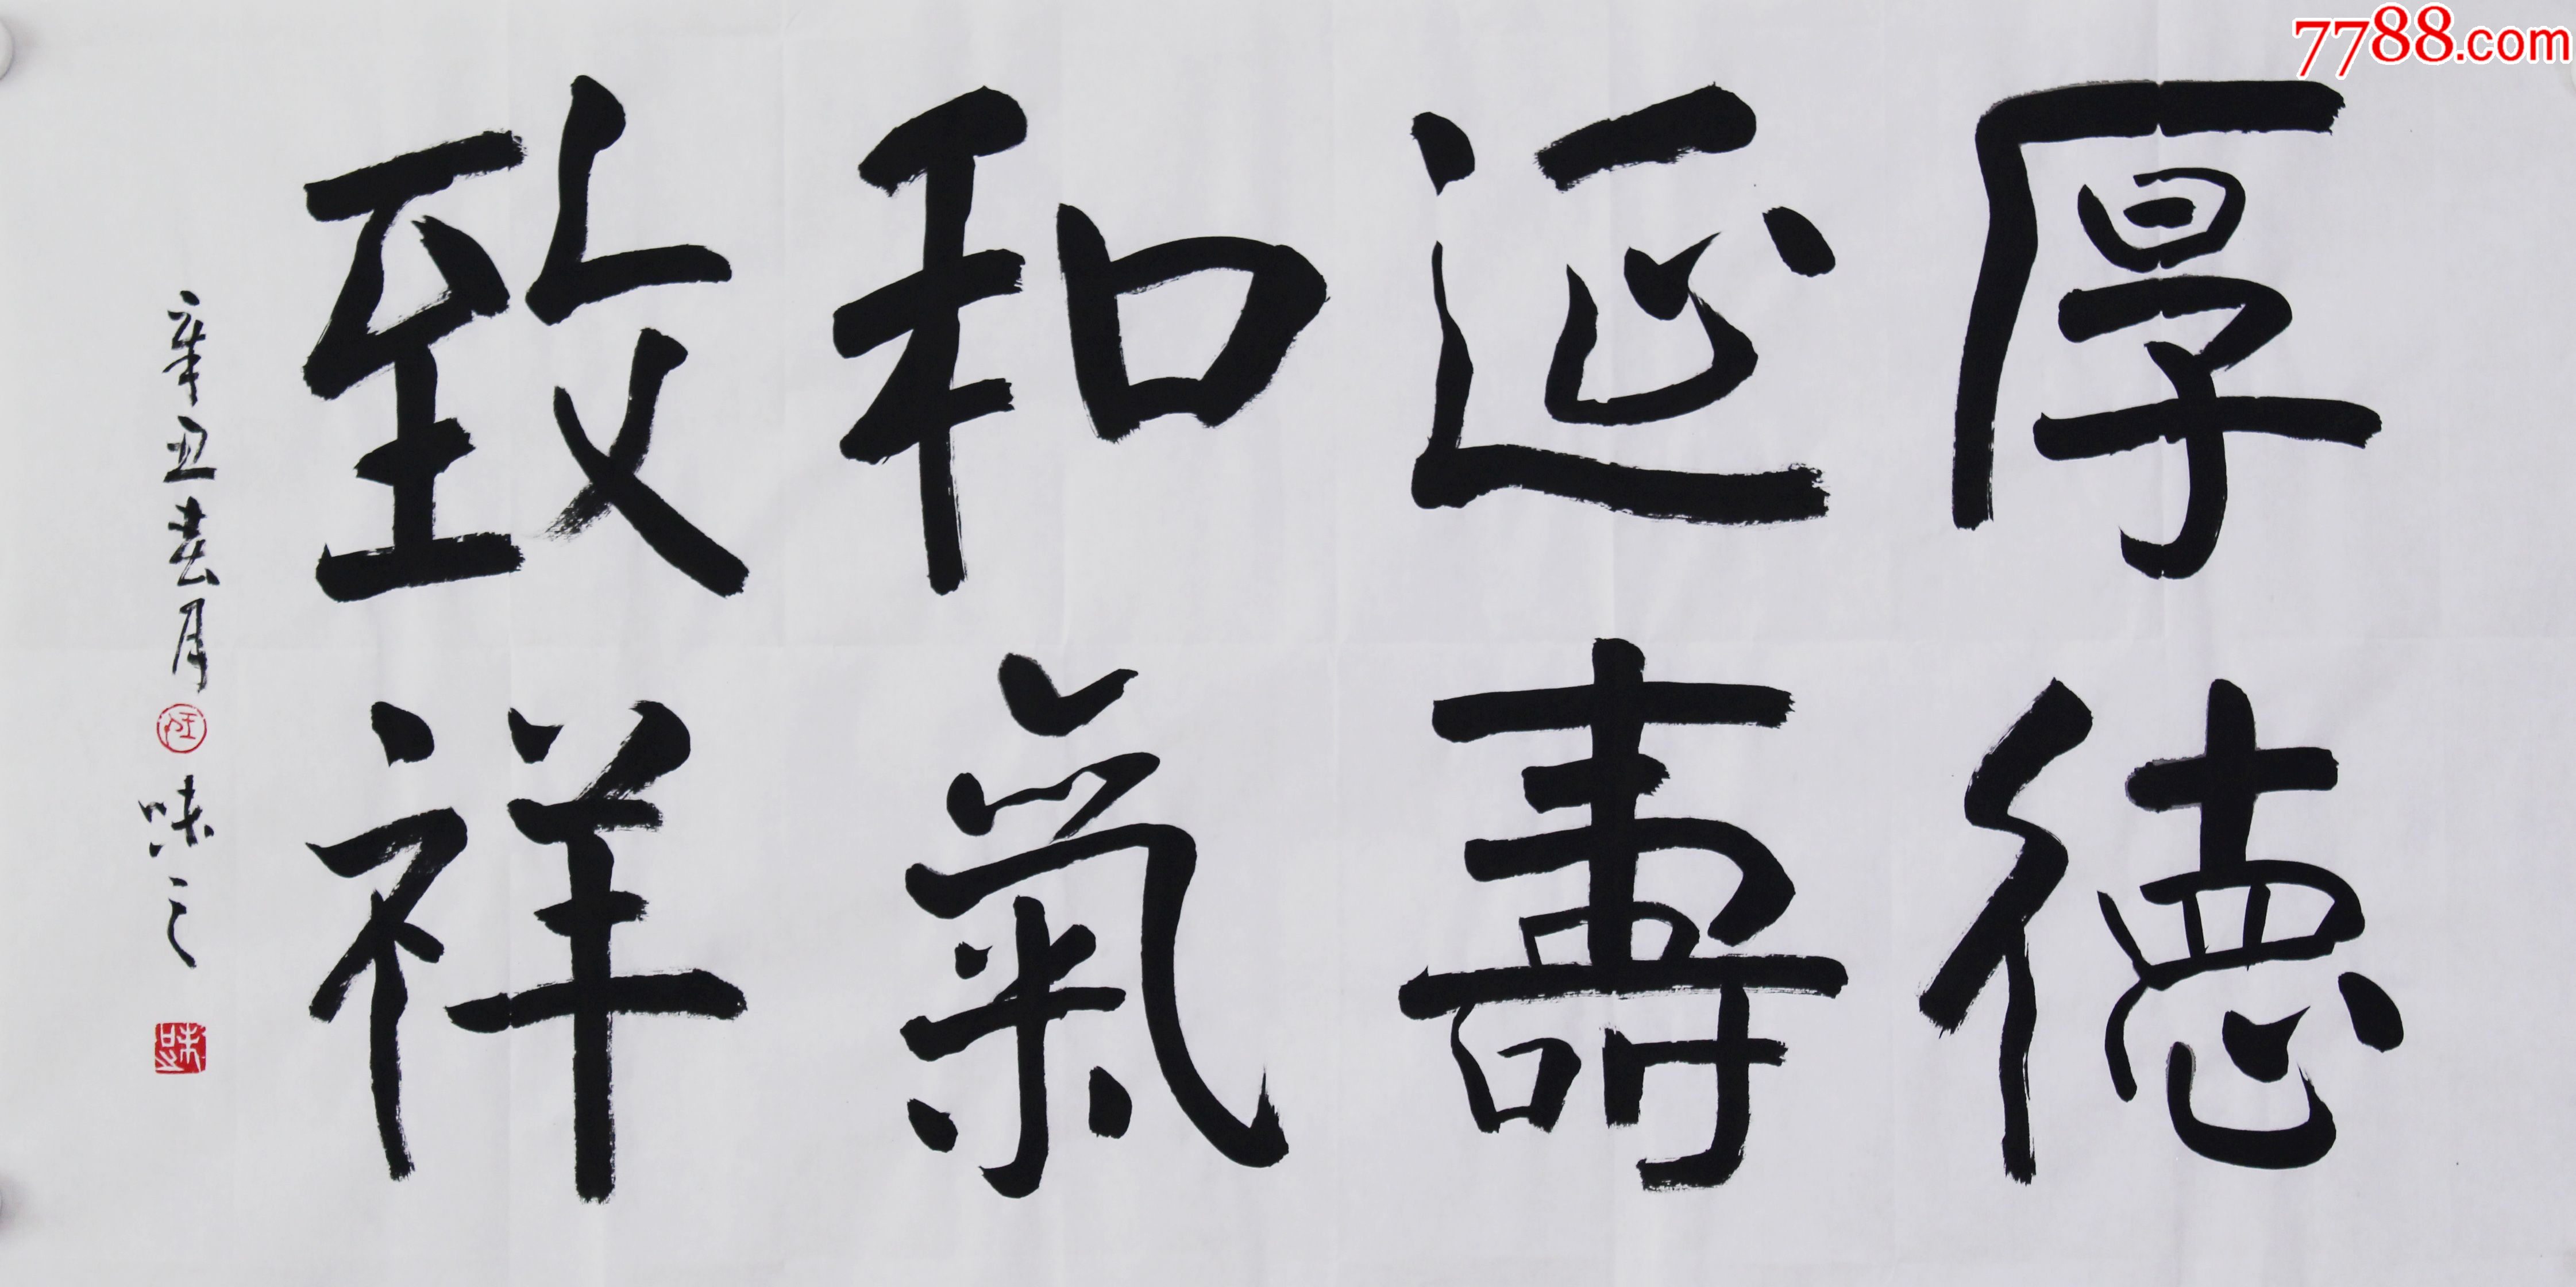 7788.com
厚德
延壽
和氣
致祥
辛丑春月
味之
味